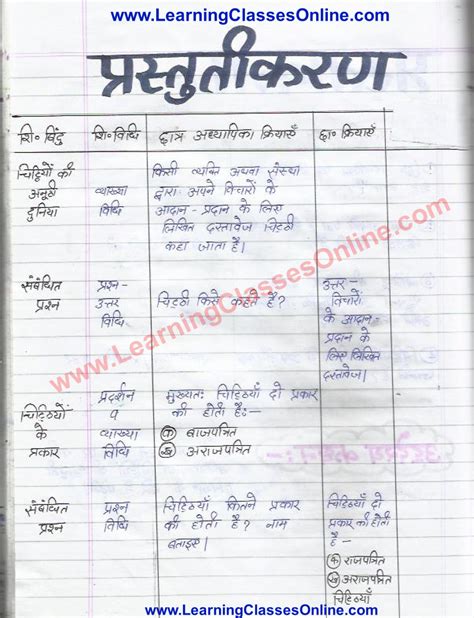 www.LearningClassesOnline.com
प्रस्तुतीकरण
शि० बिंदु
शि० विधि
छात्र अध्यापिका क्रियाएँ
छा० क्रियाएँ
चिट्ठियों की
अनूठी
दुनिया
व्याख्या
विधि
किसी व्यक्ति अथवा संस्था
द्वारा अपने विचारों के
आदान - प्रदान के लिए
लिखित दस्तावेज चिट्ठी
कहा जाता है।
संबंधित
प्रश्न
प्रश्न-
उत्तर
विधि
चिट्ठी किसे कहते है?
उत्तर-
विचारों
के आदान-
प्रदान के
लिए लिखित
दस्तावेज।
चिट्ठियों
के
प्रकार
प्रदर्शन
व
व्याख्या
विधि
मुख्यतः चिट्ठियाँ दो प्रकार
की होती है:-
क बाजपत्रित
ख अराजपत्रित
संबंधित
प्रश्न
प्रश्न
विधि
चिट्ठियाँ कितने प्रकार
की होती है? नाम
बताइए।
चिट्ठियाँ दो
प्रकार की होती
है-
क राजपत्रित
ख अराजपत्रित
चिट्ठियाँ
www.LearningClassesOnline.com
www.LearningClassesOnline.com